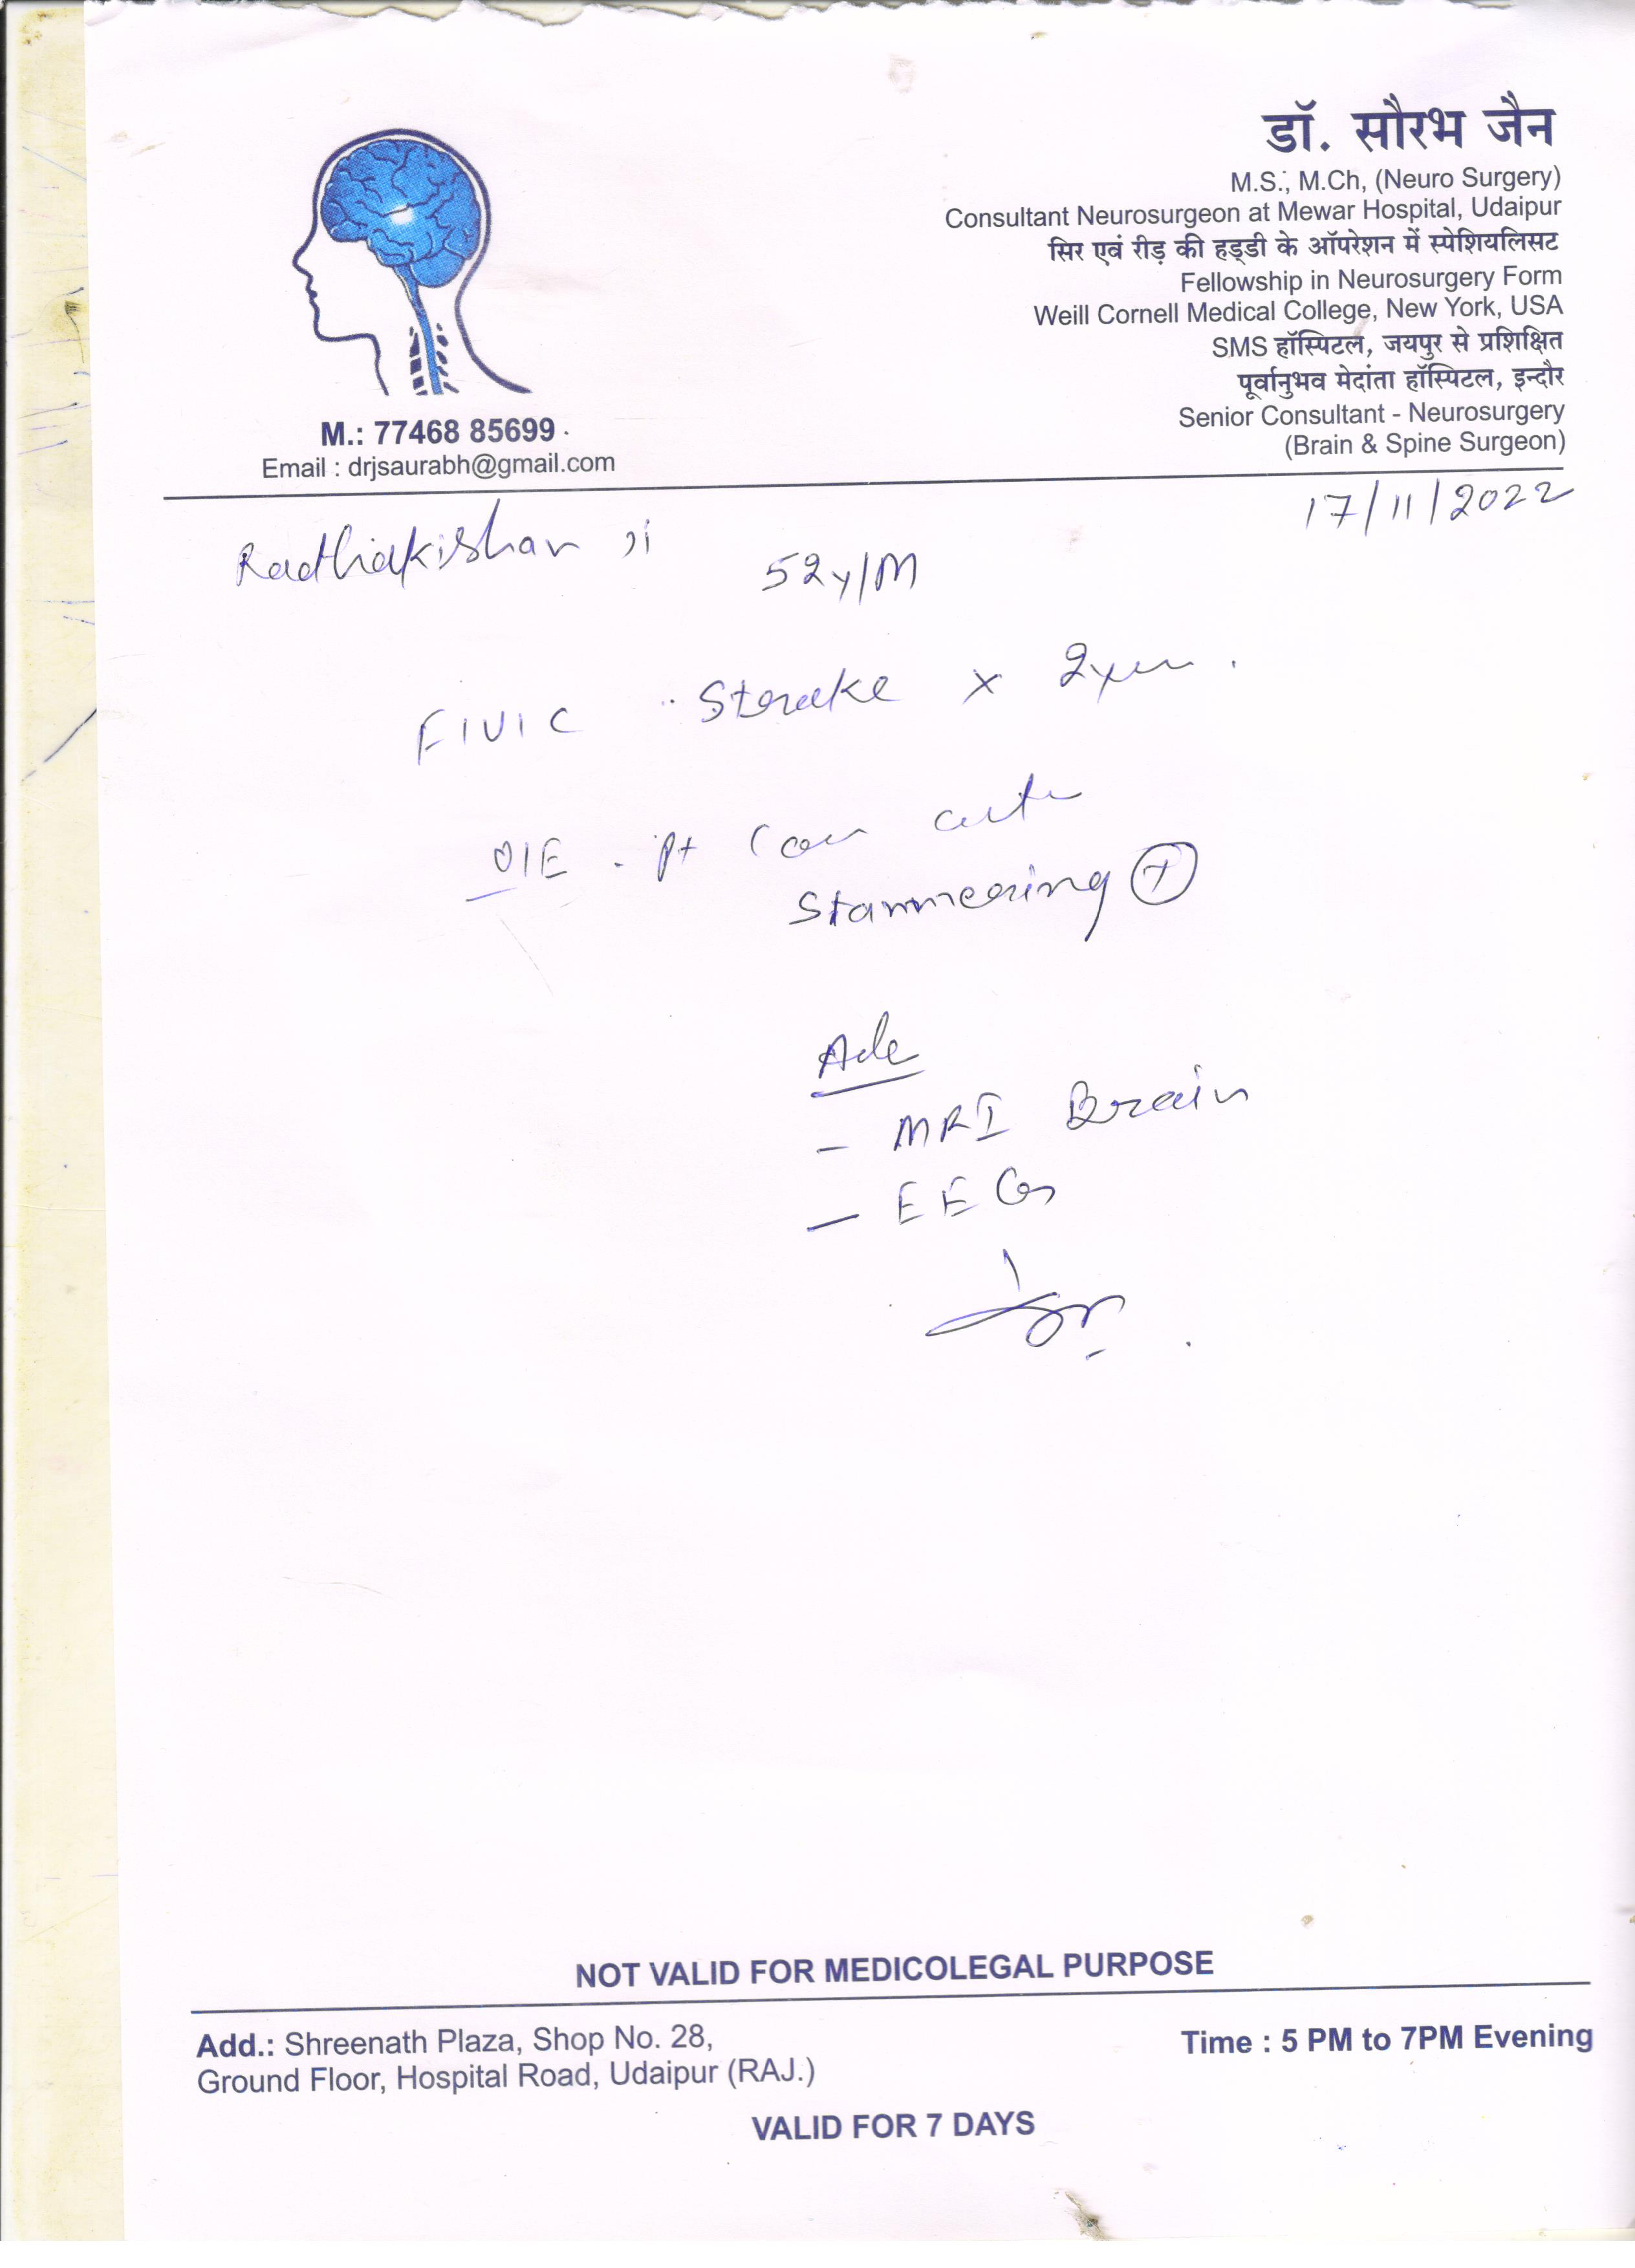 डॉ. सौरभ जैन
M.S., M.Ch, (Neuro Surgery)
Consultant Neurosurgeon at Mewar Hospital, Udaipur
सिर एवं रीड़ की हड्डी के ऑपरेशन में स्पेशियलिसट
Fellowship in Neurosurgery Form
Weill Cornell Medical College, New York, USA
SMS हॉस्पिटल, जयपुर से प्रशिक्षित
पूर्वानुभव मेदांता हॉस्पिटल, इन्दौर
Senior Consultant - Neurosurgery
(Brain & Spine Surgeon)
M.: 77468 85699
Email : drjsaurabh@gmail.com
17/11/2022
Radhakishan ji
52y/M
Stroke x 2
O/E - Pt
Stammering +
- MRI Brain
- EEG
NOT VALID FOR MEDICOLEGAL PURPOSE
Add.: Shreenath Plaza, Shop No. 28,
Ground Floor, Hospital Road, Udaipur (RAJ.)
Time : 5 PM to 7PM Evening
VALID FOR 7 DAYS